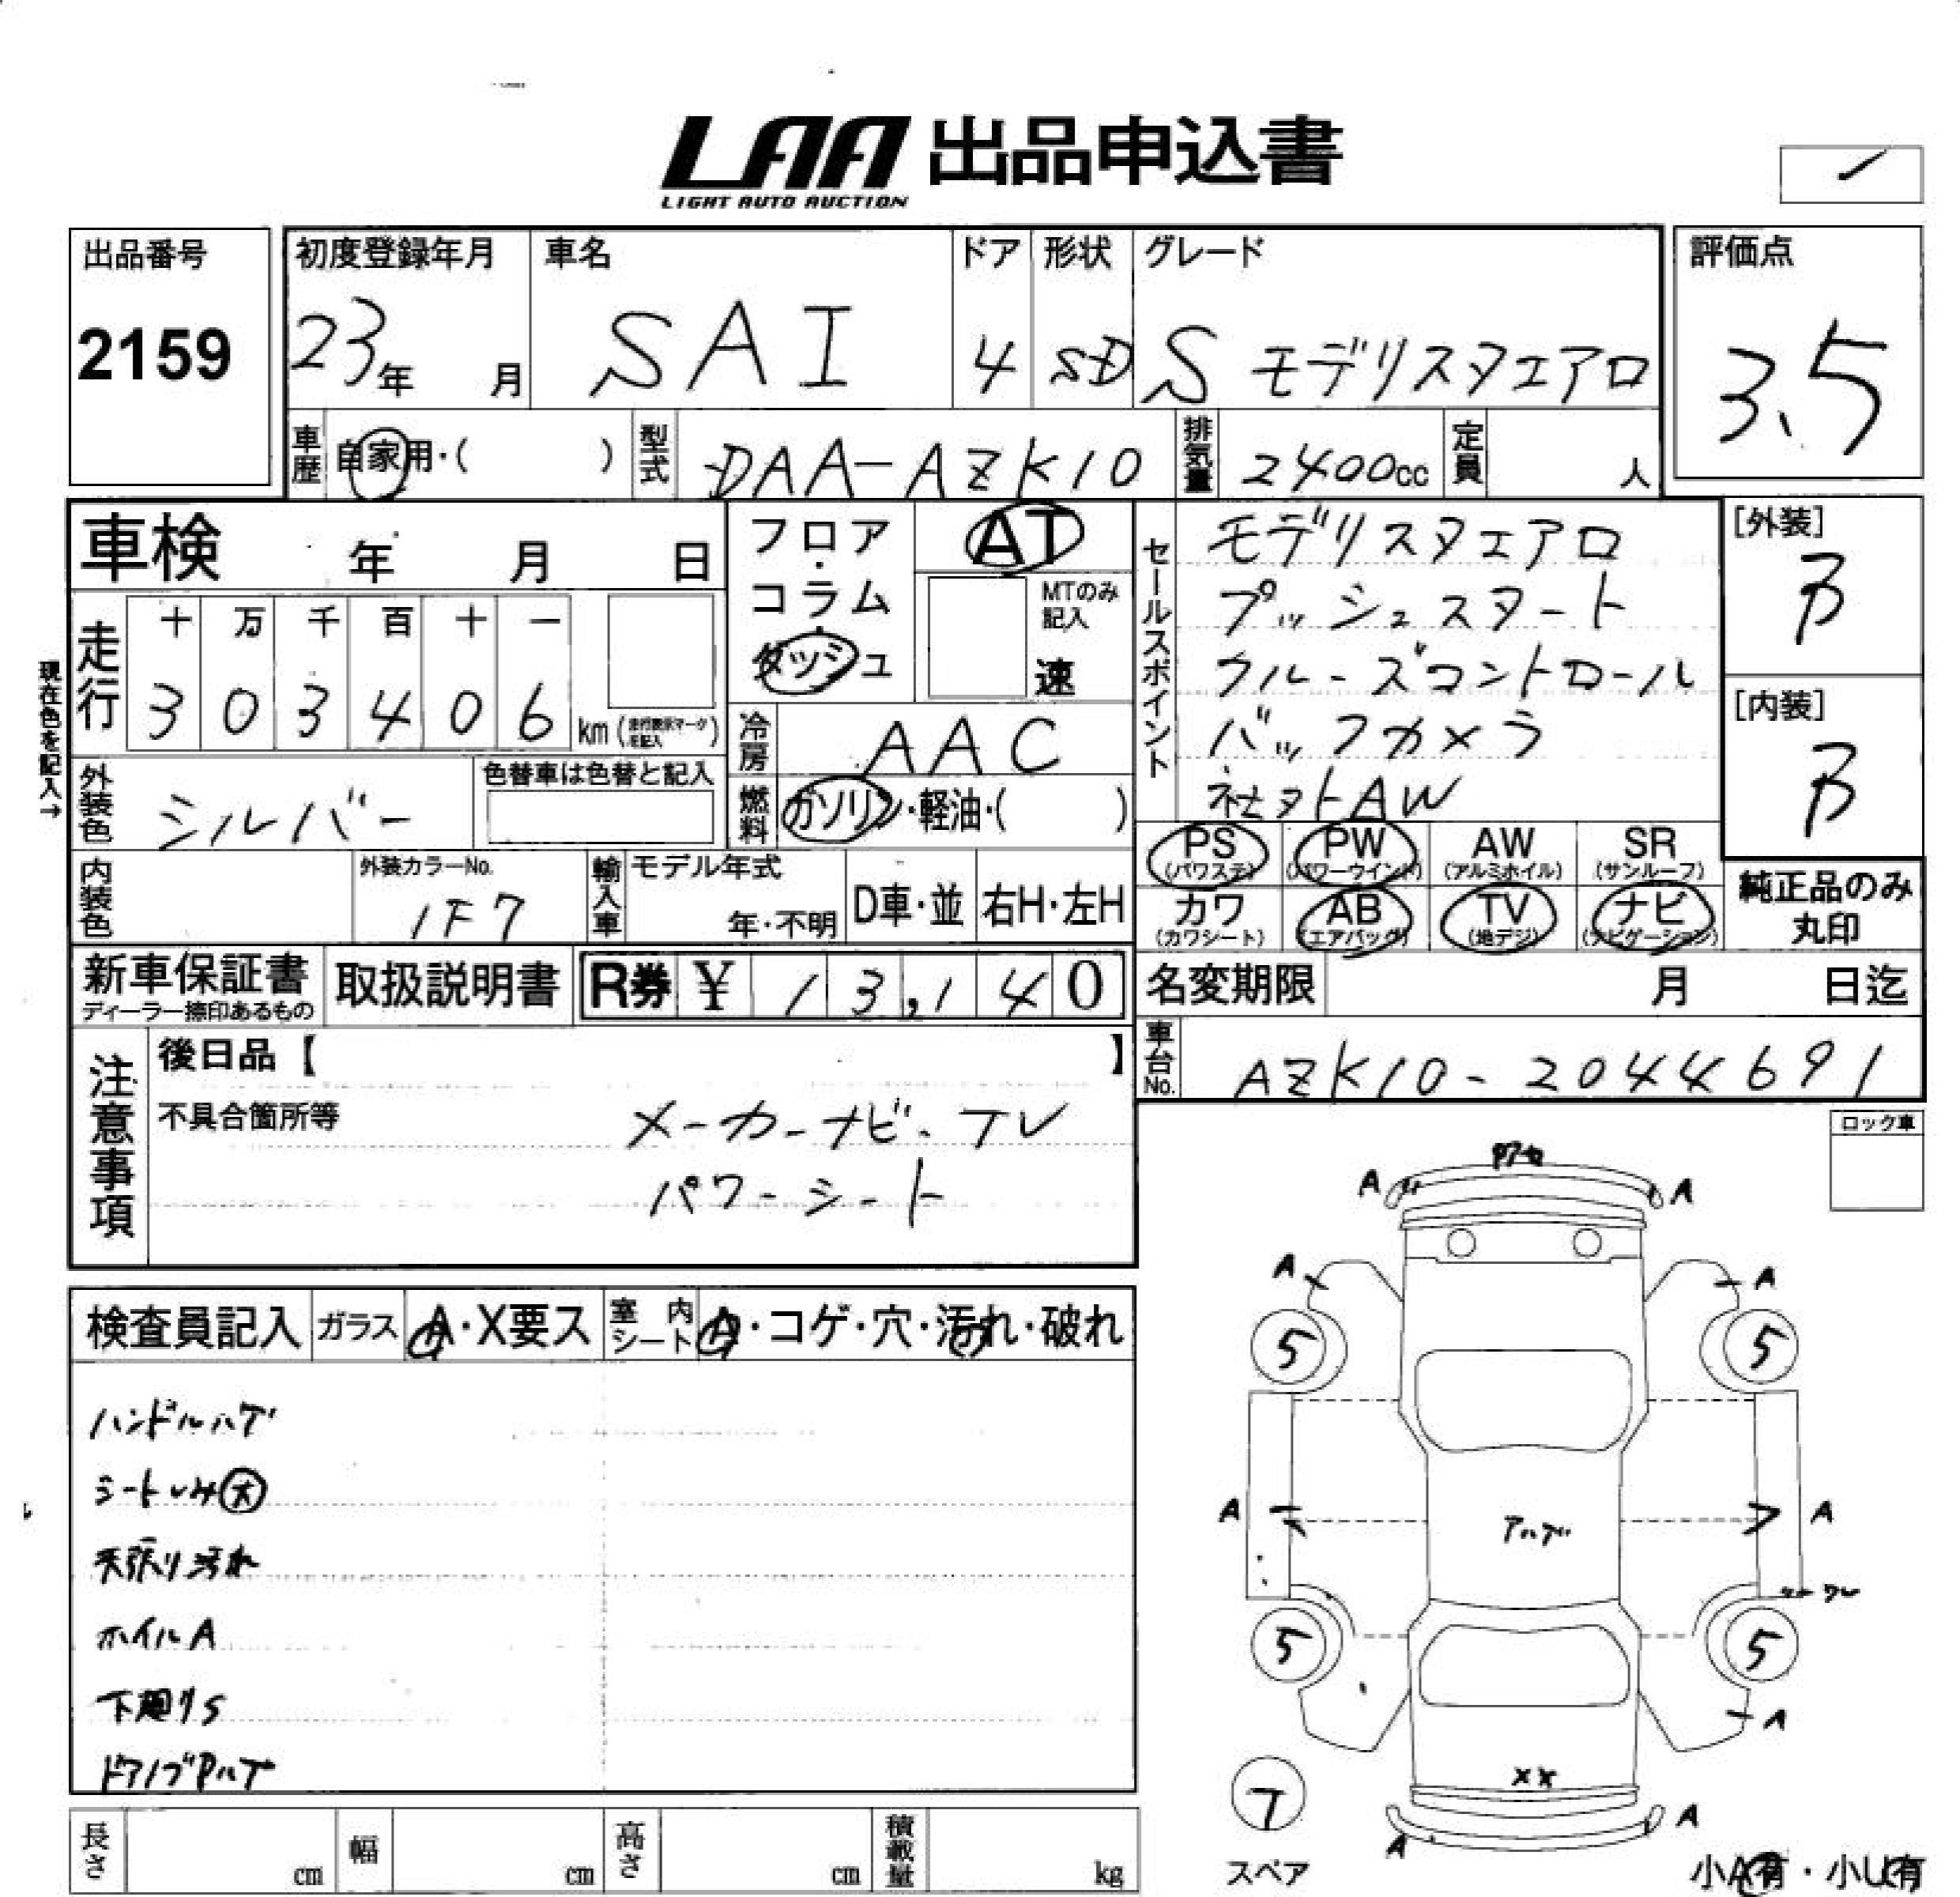 LAA 出品申込書
LIGHT AUTO AUCTION
出品番号
2159
初度登録年月
23年 月
車名
SAI
ドア
4
形状
SD
グレード
S モデリスタエアロ
評価点
3.5
車歴 自家用・( )
型式 DAA-AZK10
排気量 2400cc
定員 人
車検 年 月 日
フロア・コラム・ダッシュ
AT
MTのみ記入
速
セールスポイント
モデリスタエアロ
プッシュスタート
クルーズコントロール
バックカメラ
社外AW
[外装]
B
[内装]
B
現在色を記入→
走行
十 万 千 百 十 一
3 0 3 4 0 6 km
冷房 AAC
燃料 ガソリン・軽油・( )
外装色 シルバー
色替車は色替と記入
内装色
外装カラーNo.
1F7
輸入車
モデル年式
年・不明
D車・並
右H・左H
PS (パワステ)
PW (パワーウインド)
AW (アルミホイル)
SR (サンルーフ)
カワ (カワシート)
AB (エアバッグ)
TV (地デジ)
ナビ (ナビゲーション)
純正品のみ
丸印
新車保証書
ディーラー捺印あるもの
取扱説明書
R券 ¥ 13,140
名変期限 月 日迄
車台No. AZK10-2044691
注意事項
後日品【 】
不具合箇所等
メーカーナビ・TV
パワーシート
ロック車
検査員記入
ガラス A・X要ス
室内シート A・コゲ・穴・汚れ・破れ
ハンドルハゲ
シートシミ大
天張り汚れ
ホイルA
下廻りS
ドアノブPハゲ
A A
A A
5 5
A A
5 5
A
XX
7
スペア
A A
小A有・小U有
長さ cm
幅 cm
高さ cm
積載量 kg